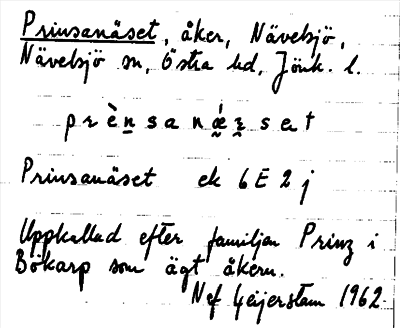 Prinsanäset, åker, Nävelsjö,
Nävelsjö sn, Östra hd, Jönk. l.
prènsanǽrset
Prinsanäset ek 6E 2j
Uppkallad efter familjen Prinz i
Bökarp som ägt åkern.
Nef Geijerstam 1962